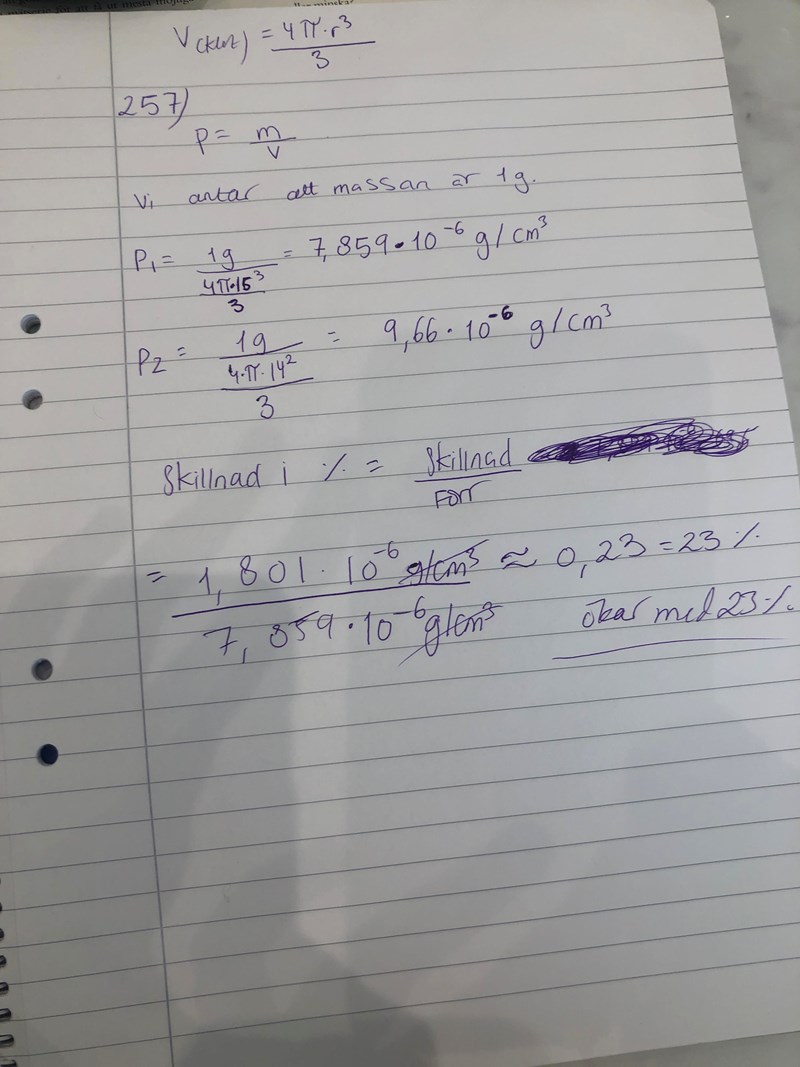 V(klot) = 4π·r³/3
257)
P = m/V
Vi antar att massan är 1g.
P₁ = 1g/(4π·15³/3) = 7,859·10⁻⁶ g/cm³
P₂ = 1g/(4·π·14²/3) = 9,66·10⁻⁶ g/cm³
Skillnad i % = Skillnad/Förr
= 1,801·10⁻⁶ g/cm³ / 7,859·10⁻⁶ g/cm³ ≈ 0,23 = 23%
ökar med 23%.